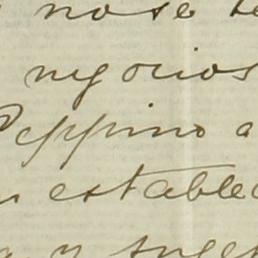 no se
negocios
Peppino a
estable
y